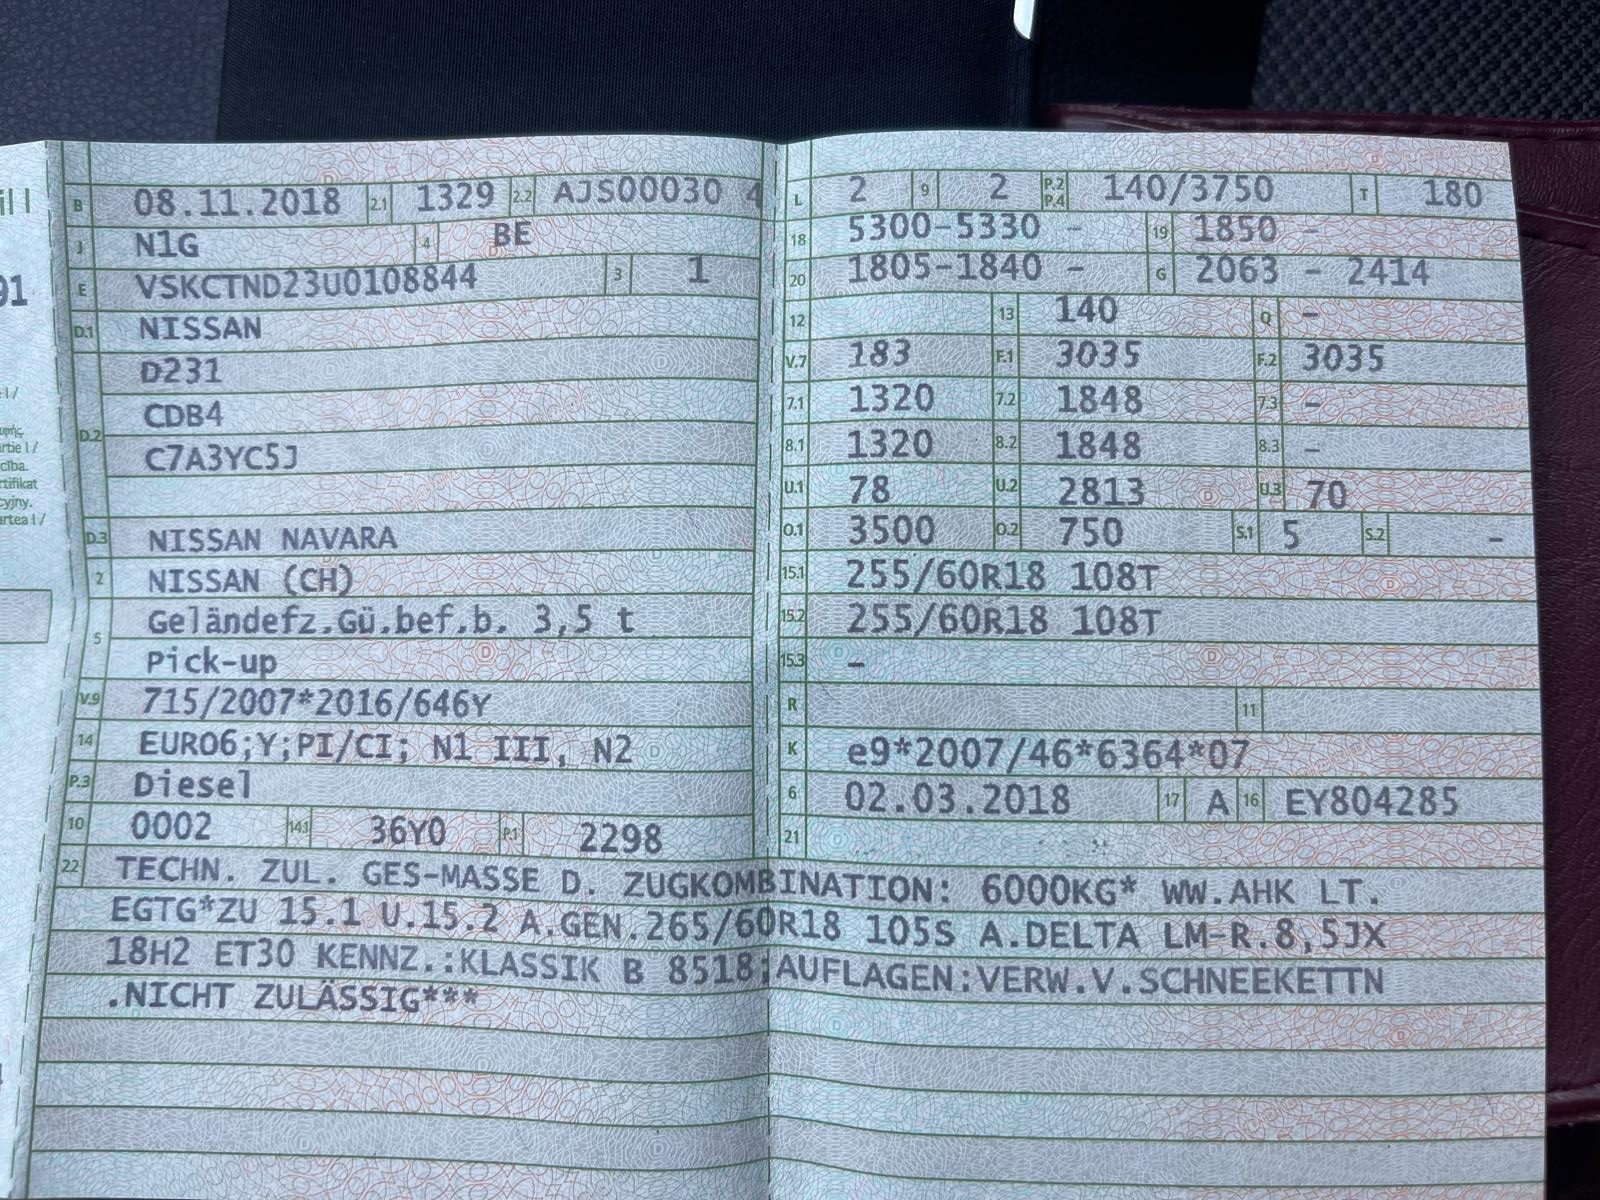 il I
91
B 08.11.2018 2.1 1329 2.2 AJS00030 4
J N1G 4 BE
E VSKCTND23U0108844 3 1
D.1 NISSAN
D231
CDB4
D.2
C7A3YC5J
D.3 NISSAN NAVARA
2 NISSAN (CH)
Geländefz.Gü.bef.b. 3,5 t
5
Pick-up
V.9 715/2007*2016/646Y
14 EURO6;Y;PI/CI; N1 III, N2
P.3 Diesel
10 0002 14.1 36Y0 P.1 2298
L 2 9 2 P.2 P.4 140/3750 T 180
18 5300-5330 - 19 1850 -
20 1805-1840 - G 2063 - 2414
12 13 140 Q -
V.7 183 F.1 3035 F.2 3035
7.1 1320 7.2 1848 7.3 -
8.1 1320 8.2 1848 8.3 -
U.1 78 U.2 2813 U.3 70
O.1 3500 O.2 750 S.1 5 S.2 -
15.1 255/60R18 108T
15.2 255/60R18 108T
15.3 -
R 11
K e9*2007/46*6364*07
6 02.03.2018 17 A 16 EY804285
21
22 TECHN. ZUL. GES-MASSE D. ZUGKOMBINATION: 6000KG* WW.AHK LT.
EGTG*ZU 15.1 U.15.2 A.GEN.265/60R18 105S A.DELTA LM-R.8,5JX
18H2 ET30 KENNZ.:KLASSIK B 8518;AUFLAGEN:VERW.V.SCHNEEKETTN
.NICHT ZULÄSSIG***